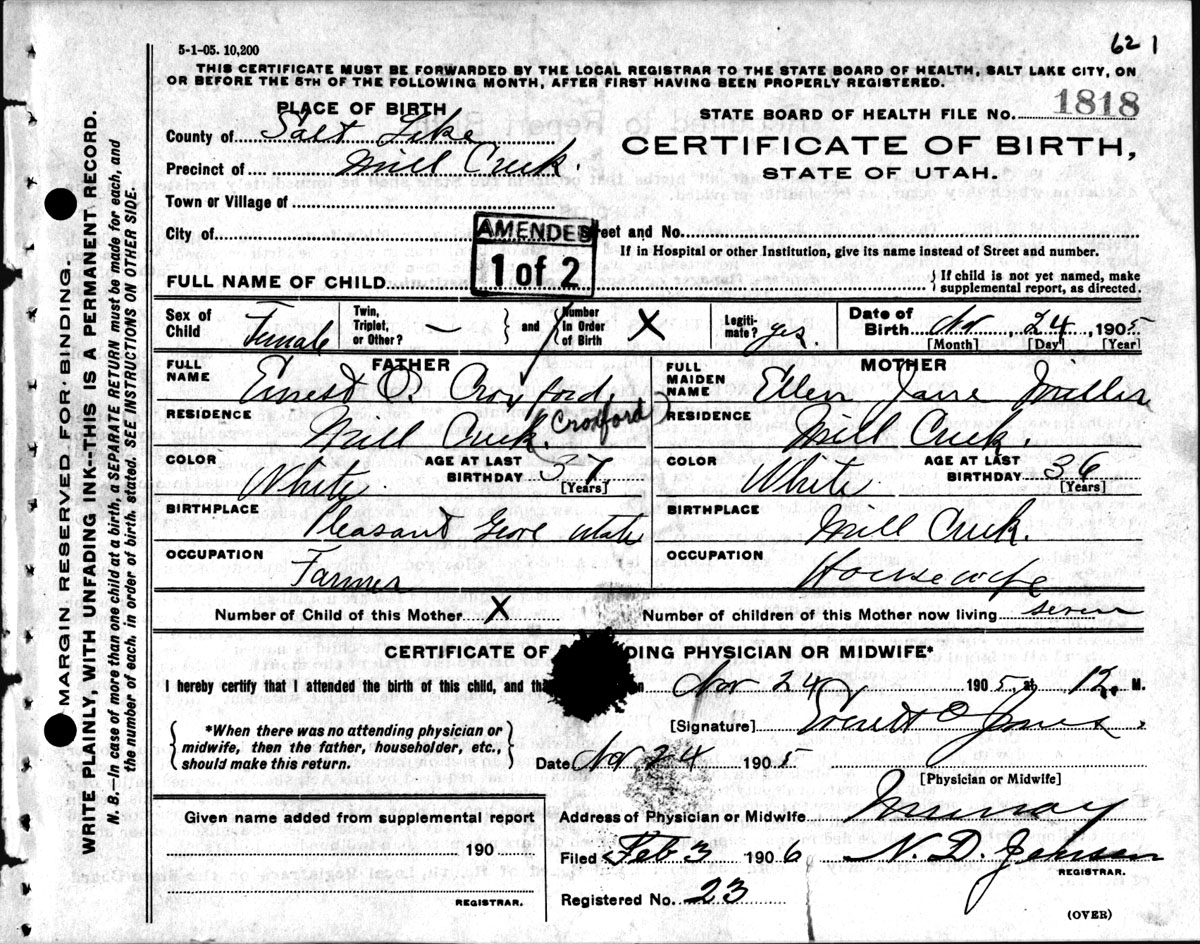 62 1
5-1-05. 10,200
THIS CERTIFICATE MUST BE FORWARDED BY THE LOCAL REGISTRAR TO THE STATE BOARD OF HEALTH, SALT LAKE CITY, ON
OR BEFORE THE 5TH OF THE FOLLOWING MONTH, AFTER FIRST HAVING BEEN PROPERLY REGISTERED.
PLACE OF BIRTH
STATE BOARD OF HEALTH FILE No. 1818
County of Salt Lake
CERTIFICATE OF BIRTH,
Precinct of Mill Creek.
STATE OF UTAH.
Town or Village of
City of
Street and No.
AMENDED
1 of 2
If in Hospital or other Institution, give its name instead of Street and number.
FULL NAME OF CHILD
If child is not yet named, make
supplemental report, as directed.
Sex of Child Female
Twin, Triplet, or Other? —
and
Number in Order of Birth X
Legiti- mate? yes.
Date of Birth Nov 24, 1905
[Month] [Day] [Year]
FATHER
FULL NAME Ernest O. Croxford,
(Croxford)
MOTHER
FULL MAIDEN NAME Ellen Jane Miller
RESIDENCE Mill Creek.
RESIDENCE Mill Creek.
COLOR White
AGE AT LAST BIRTHDAY 37
[Years]
COLOR White
AGE AT LAST BIRTHDAY 36
[Years]
BIRTHPLACE Pleasant Grove Utah
BIRTHPLACE Mill Creek.
OCCUPATION Farmer
OCCUPATION Housewife
Number of Child of this Mother X
Number of children of this Mother now living seven
CERTIFICATE OF DING PHYSICIAN OR MIDWIFE*
I hereby certify that I attended the birth of this child, and tha n Nov 24 1905, at 12. M.
*When there was no attending physician or
midwife, then the father, householder, etc.,
should make this return.
[Signature] Everett O Jones.
Date Nov 24 1905
[Physician or Midwife]
Given name added from supplemental report
190
REGISTRAR.
Address of Physician or Midwife Murray
Filed Feb 3 1906 N. D. Johnson
REGISTRAR.
Registered No. 23
(OVER)
MARGIN RESERVED FOR BINDING.
WRITE PLAINLY, WITH UNFADING INK--THIS IS A PERMANENT RECORD.
N. B.—In case of more than one child at birth, a SEPARATE RETURN must be made for each, and
the number of each, in order of birth, stated. SEE INSTRUCTIONS ON OTHER SIDE.